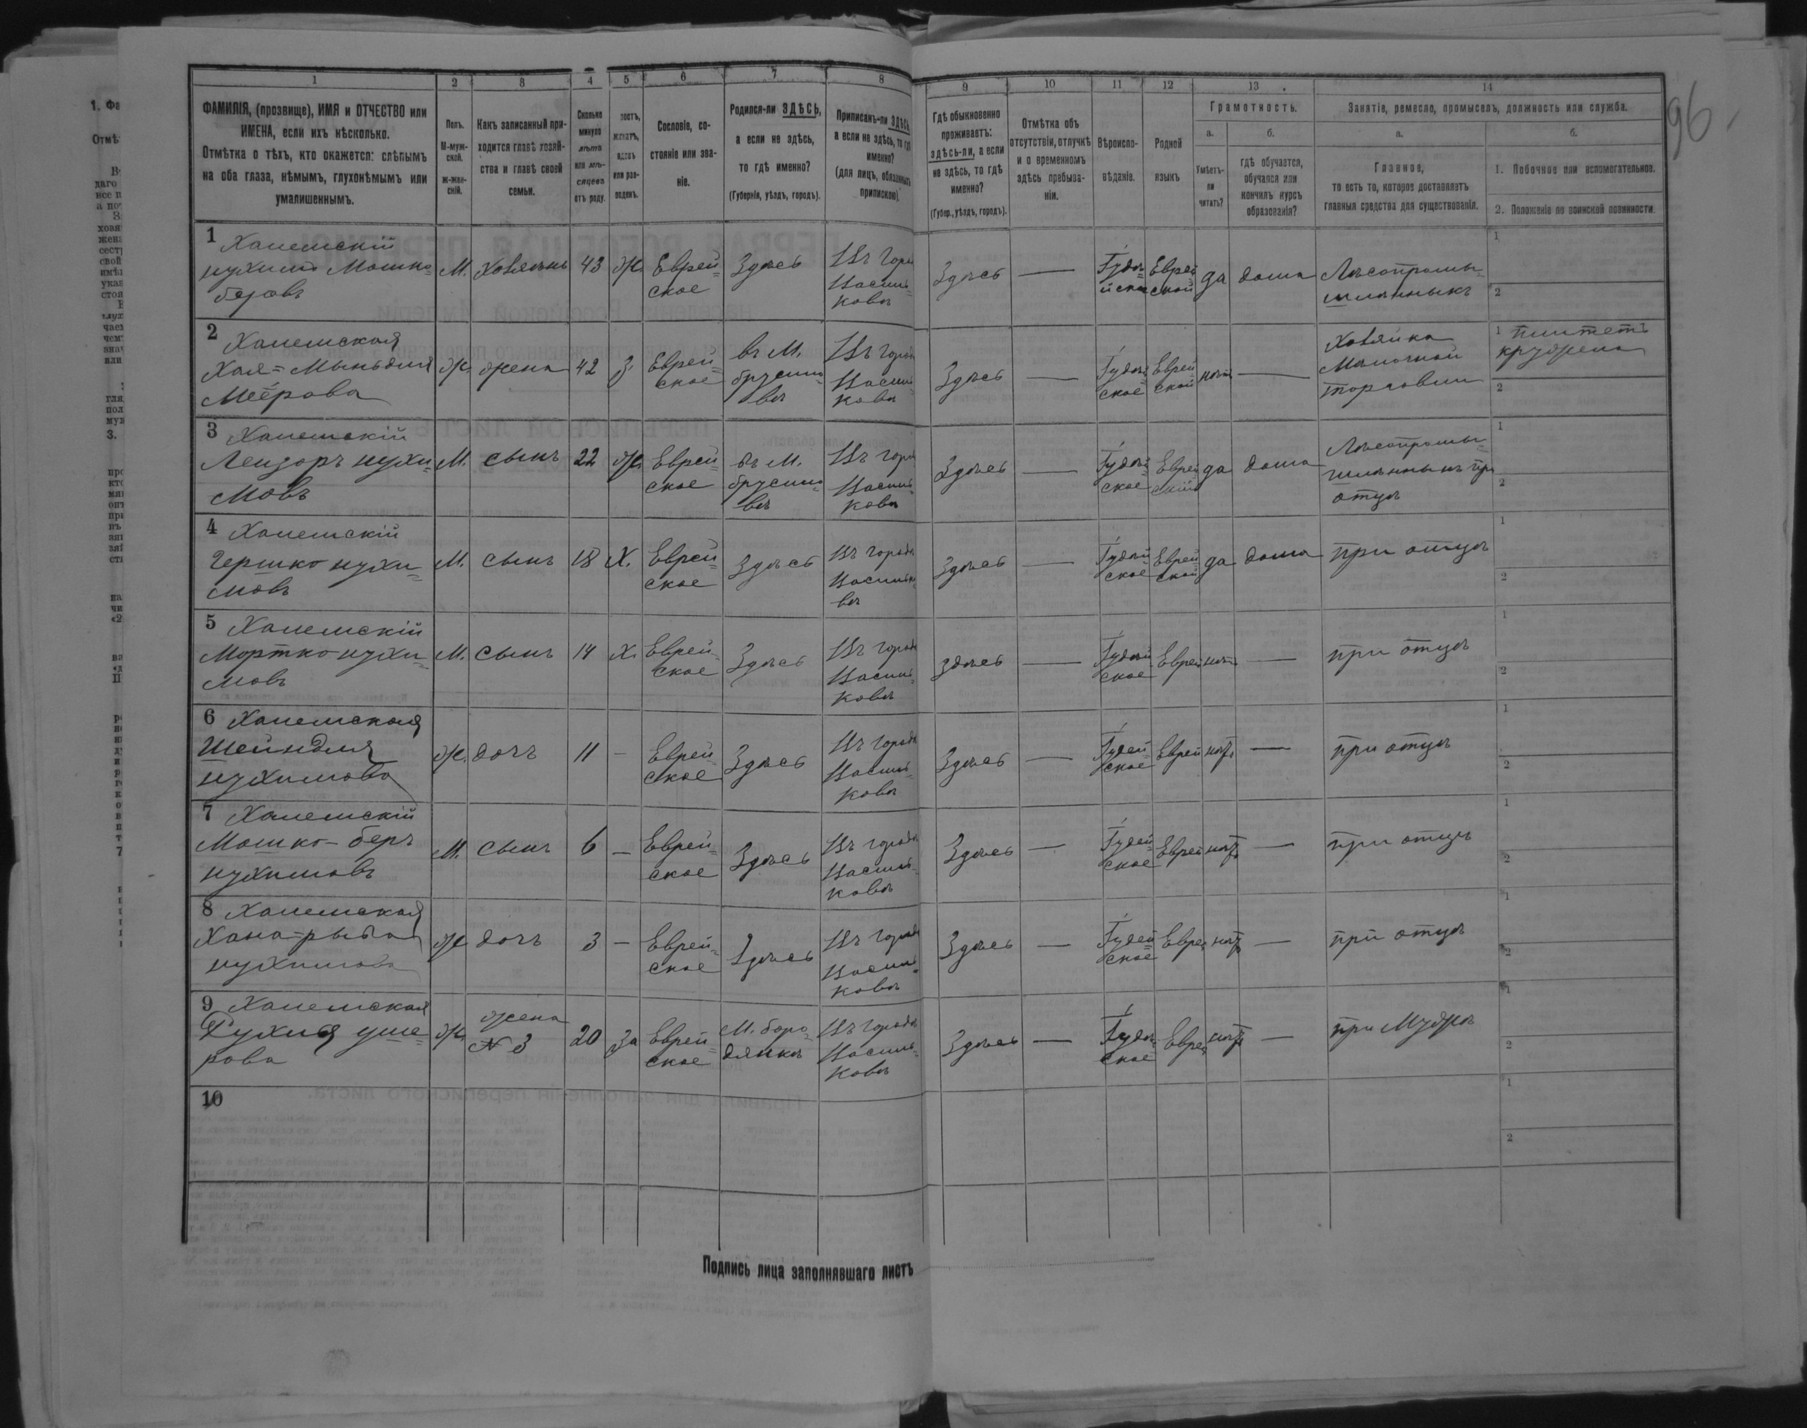 96
1 2 3 4 5 6 7 8 9 10 11 12 13 14
ФАМИЛІЯ, (прозвище), ИМЯ и ОТЧЕСТВО или
ИМЕНА, если ихъ нѣсколько.
Отмѣтка о тѣхъ, кто окажется: слѣпымъ
на оба глаза, нѣмымъ, глухонѣмымъ или
умалишеннымъ.
Полъ.
М-муж-
ской.
ж-жен-
скій.
Какъ записанный при-
ходится главѣ хозяй-
ства и главѣ своей
семьи.
Сколько
минуло
лѣтъ
или мѣ-
сяцевъ
отъ роду.
Сословіе, со-
стояніе или зва-
ніе.
Родился-ли ЗДѢСЬ,
а если не здѣсь,
то гдѣ именно?
(Губернія, уѣздъ, городъ).
Приписанъ-ли ЗДѢСЬ
а если не здѣсь, то гдѣ
именно?
(для лицъ, обязанныхъ
припискою).
Гдѣ обыкновенно
проживаетъ:
здѣсь-ли, а если
не здѣсь, то гдѣ
именно?
(Губер., уѣздъ, городъ).
Отмѣтка объ
отсутствіи, отлучкѣ
и о временномъ
здѣсь пребыва-
ніи.
Вѣроиспо-
вѣданіе.
Родной
языкъ
Грамотность.
а.
Умѣетъ-
ли
читать?
б.
гдѣ обучается,
обучался или
кончилъ курсъ
образованія?
Занятіе, ремесло, промыселъ, должность или служба.
а.
Главное,
то есть то, которое доставляетъ
главныя средства для существованія.
б.
1. Побочное или вспомогательное.
2. Положеніе по воинской повинности.
1 Ханемскій
нухимъ Мошко-
беровъ
М. Хозяинъ 43 Ж. Еврей-
ское
Здѣсь
Въ Город
Васильковѣ
Здѣсь — Іудей-
ское
Еврей-
ской
да дома
Лѣсопромы-
шленникъ
2 Ханемская
Хая-
Меерова
Ж. жена 42 З Еврей-
ское
въ М.
брусило-
вѣ
Въ Город
Василь-
ковѣ
Здѣсь — Іудей-
ское
Еврей-
ской
нѣтъ —
Хозяйка
Молочной
торговли
3 Ханемскій
Лейзоръ нухи-
мовъ
М. сынъ 22 Ж. Еврей-
ское
въ М.
брусило-
вѣ
Въ Город
Василь-
ковѣ
Здѣсь — Іудей-
ское
Еврей-
скій
да дома
Лѣсопромы-
шленникъ при
отцѣ
4 Ханемскій
Гершко нухи-
мовъ
М. сынъ 18 Х. Еврей-
ское
Здѣсь
Въ городѣ
Василько-
вѣ
Здѣсь — Іудей-
ское
Еврей-
ской
да дома при отцѣ
5 Ханемскій
Мортко нухи-
мовъ
М. сынъ 14 Х. Еврей-
ское
Здѣсь
Въ Городѣ
Василь-
ковѣ
здѣсь — Іудей-
ское
Еврей нѣтъ — при отцѣ
6 Ханемская
Шейндля
нухимова
Ж. дочь 11 — Еврей-
ское
Здѣсь
Въ Городѣ
Василь-
ковѣ
Здѣсь — Іудей-
ское
Еврей нѣтъ — при отцѣ
7 Ханемскій
Мошко-беръ
нухимовъ
М. сынъ 6 — Еврей-
ское
Здѣсь
Въ Городѣ
Василь-
ковѣ
Здѣсь — Іудей-
ское
Еврей нѣтъ — при отцѣ
8 Ханемская
Хана-рыва
нухимова
Ж дочь 3 — Еврей-
ское
Здѣсь
Въ Городѣ
Василь-
ковѣ
Здѣсь — Іудей-
ское
Еврей нѣтъ — при отцѣ
9 Ханемская
Рухля уше-
рова
Ж. жена
N 3
20 За Еврей-
ское
М. боро-
дянкѣ
Въ Городѣ
Василь-
ковѣ
Здѣсь — Іудей-
ское
Еврей нѣтъ — при Мужѣ
10
Подпись лица заполнявшаго листъ